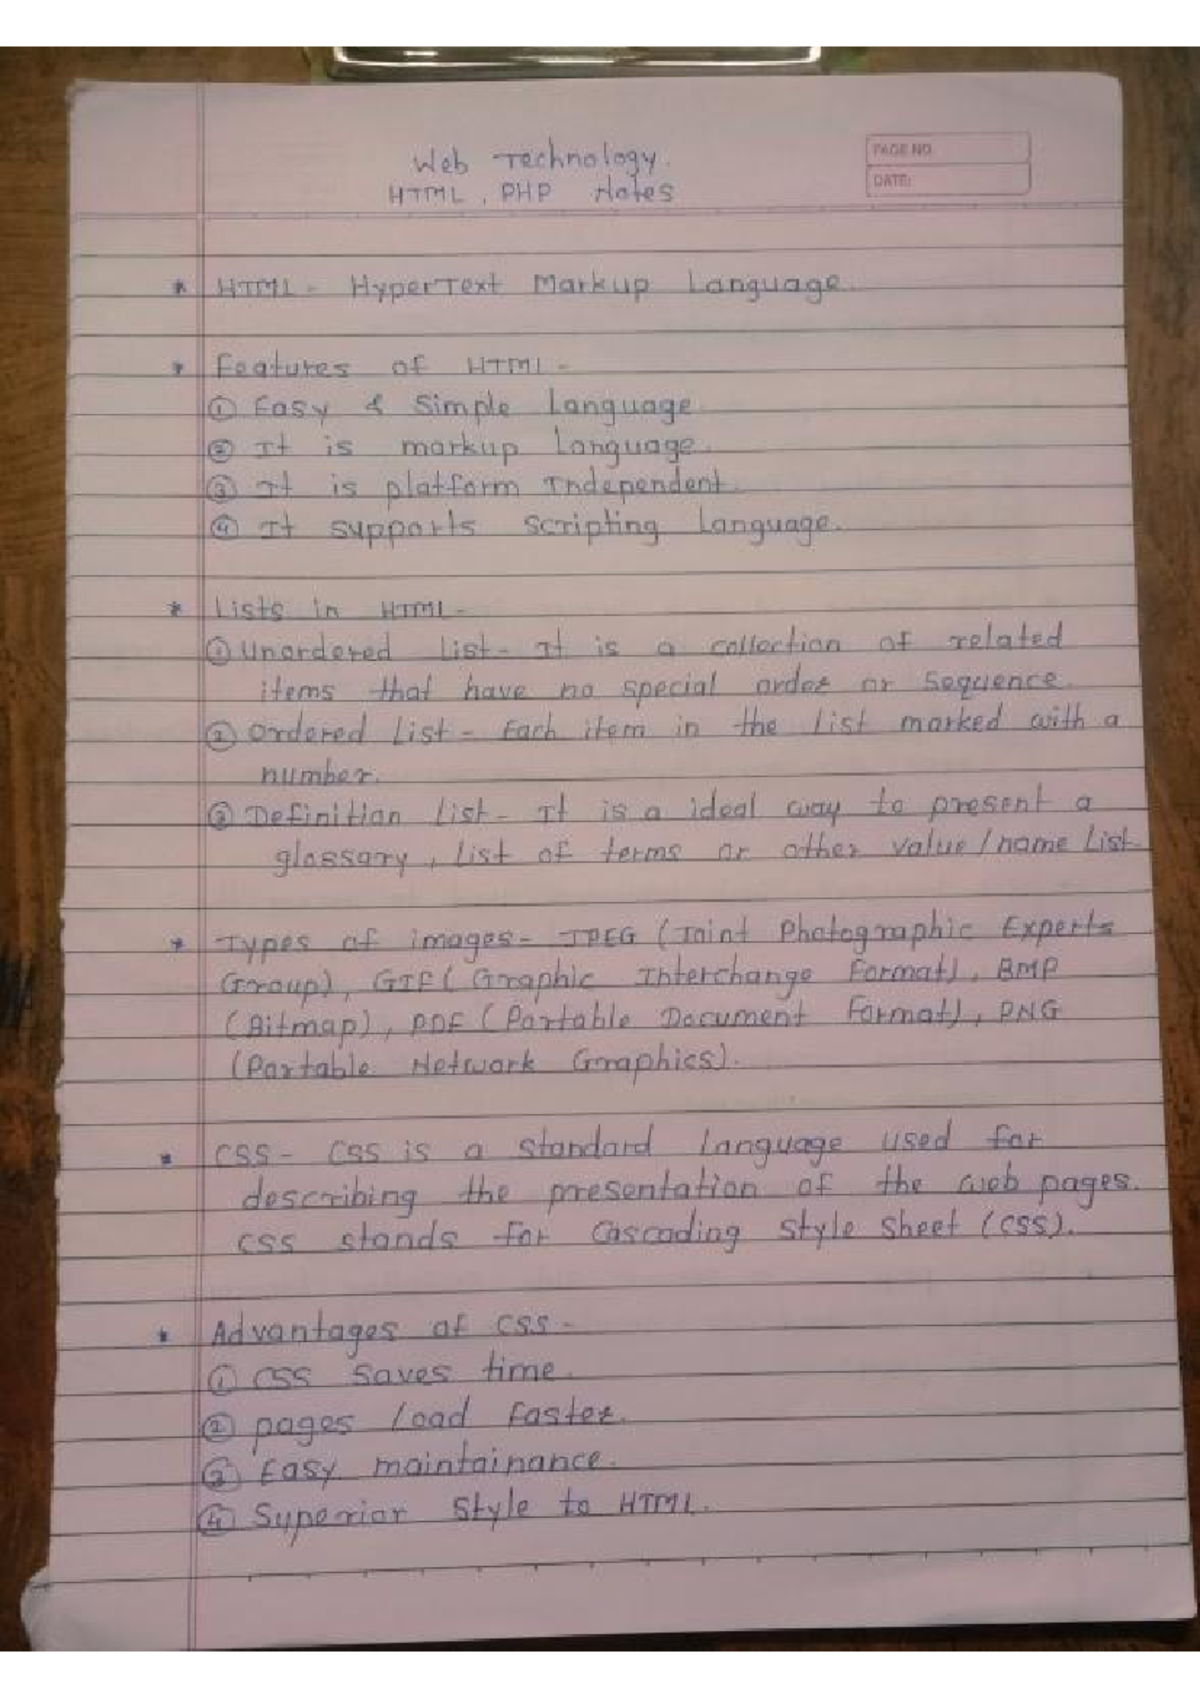 Web Technology.
HTML, PHP Notes
PAGE NO.
DATE:
* HTML - HyperText Markup Language.
* Features of HTML -
① Easy & Simple Language.
② It is markup Language.
③ It is platform Independent.
④ It supports Scripting Language.
* Lists in HTML -
① Unordered List - It is a collection of related
items that have no special order or sequence.
② Ordered List - Each item in the list marked with a
number.
③ Definition List - It is a ideal way to present a
glossary, list of terms or other value/name List.
* Types of images - JPEG (Joint Photographic Experts
Group), GIF (Graphic Interchange Format), BMP
(Bitmap), PDF (Portable Document Format), PNG
(Portable Network Graphics).
* CSS - CSS is a standard language used for
describing the presentation of the web pages.
CSS stands for Cascading Style Sheet (CSS).
* Advantages of CSS -
① CSS saves time.
② pages load faster.
③ Easy maintainance.
④ Superior Style to HTML.